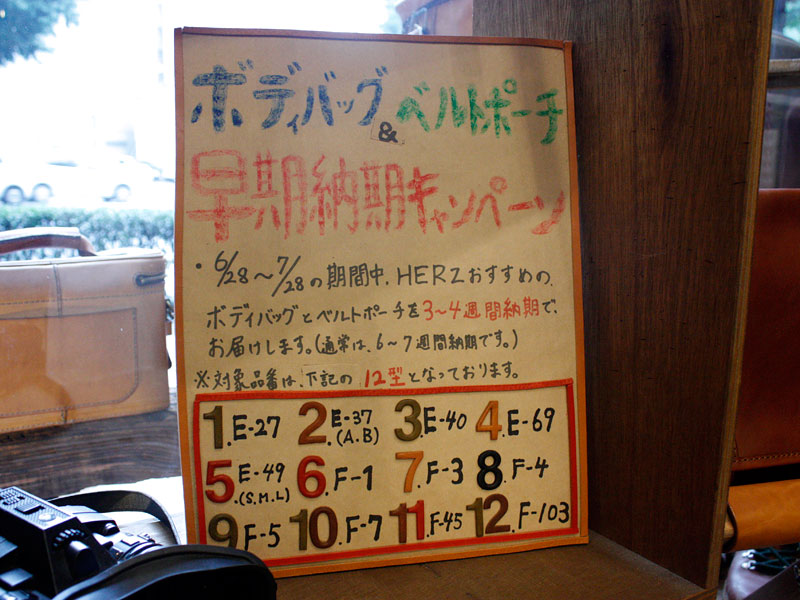 ボディバッグ
&
ベルトポーチ
早期納期キャンペーン
・6/28～7/28の期間中、HERZおすすめの、
ボディバッグとベルトポーチを3～4週間納期で、
お届けします。(通常は、6～7週間納期です。)
※対象品番は、下記の12型となっております。
1.E-27 2.E-37(A.B) 3.E-40 4.E-69
5.E-49(S.M.L) 6.F-1 7.F-3 8.F-4
9.F-5 10.F-7 11.F-45 12.F-103